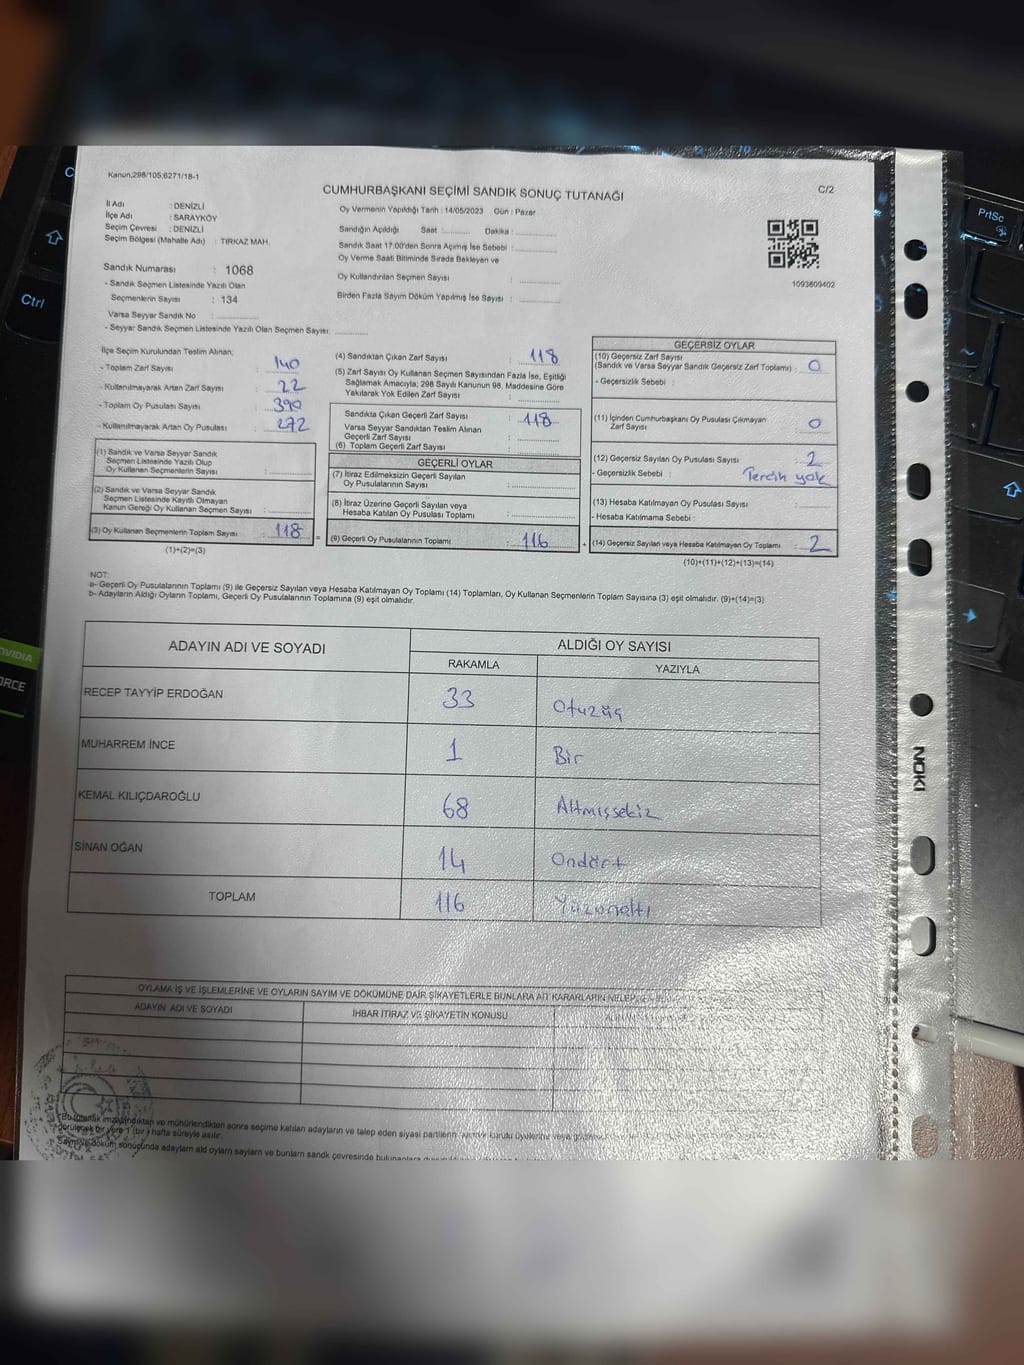 Kanun,298/105;6271/18-1
CUMHURBAŞKANI SEÇİMİ SANDIK SONUÇ TUTANAĞI
C/2
İl Adı : DENİZLİ
İlçe Adı : SARAYKÖY
Seçim Çevresi : DENİZLİ
Seçim Bölgesi (Mahalle Adı) : TIRKAZ MAH.
Oy Vermenin Yapıldığı Tarih : 14/05/2023 Gün : Pazar
Sandığın Açıldığı Saat : Dakika :
Sandık Saat 17:00'den Sonra Açımış İse Sebebi :
Oy Verme Saati Bitiminde Sırada Bekleyen ve
Oy Kullandırılan Seçmen Sayısı :
Birden Fazla Sayım Döküm Yapılmış İse Sayısı :
1093609402
Sandık Numarası : 1068
- Sandık Seçmen Listesinde Yazılı Olan
Seçmenlerin Sayısı : 134
Varsa Seyyar Sandık No :
- Seyyar Sandık Seçmen Listesinde Yazılı Olan Seçmen Sayısı:
İlçe Seçim Kurulundan Teslim Alınan;
- Toplam Zarf Sayısı : 140
- Kullanılmayarak Artan Zarf Sayısı : 22
- Toplam Oy Pusulası Sayısı : 390
- Kullanılmayarak Artan Oy Pusulası : 272
(1) Sandık ve Varsa Seyyar Sandık
Seçmen Listesinde Yazılı Olup
Oy Kullanan Seçmenlerin Sayısı :
(2) Sandık ve Varsa Seyyar Sandık
Seçmen Listesinde Kayıtlı Olmayan
Kanun Gereği Oy Kullanan Seçmen Sayısı :
(3) Oy Kullanan Seçmenlerin Toplam Sayısı : 118 =
(1)+(2)=(3)
(4) Sandıktan Çıkan Zarf Sayısı : 118
(5) Zarf Sayısı Oy Kullanan Seçmen Sayısından Fazla İse, Eşitliği
Sağlamak Amacıyla; 298 Sayılı Kanunun 98. Maddesine Göre
Yakılarak Yok Edilen Zarf Sayısı :
Sandıkta Çıkan Geçerli Zarf Sayısı : 118
Varsa Seyyar Sandıktan Teslim Alınan
Geçerli Zarf Sayısı :
(6) Toplam Geçerli Zarf Sayısı :
GEÇERLİ OYLAR
(7) İtiraz Edilmeksizin Geçerli Sayılan
Oy Pusulalarının Sayısı :
(8) İtiraz Üzerine Geçerli Sayılan veya
Hesaba Katılan Oy Pusulası Toplamı :
(9) Geçerli Oy Pusulalarının Toplamı : 116 +
GEÇERSİZ OYLAR
(10) Geçersiz Zarf Sayısı
(Sandık ve Varsa Seyyar Sandık Geçersiz Zarf Toplamı) : 0
- Geçersizlik Sebebi :
(11) İçinden Cumhurbaşkanı Oy Pusulası Çıkmayan
Zarf Sayısı : 0
(12) Geçersiz Sayılan Oy Pusulası Sayısı : 2
- Geçersizlik Sebebi : Tercih yok
(13) Hesaba Katılmayan Oy Pusulası Sayısı :
- Hesaba Katılmama Sebebi :
(14) Geçersiz Sayılan veya Hesaba Katılmayan Oy Toplamı : 2
(10)+(11)+(12)+(13)=(14)
NOT:
a- Geçerli Oy Pusulalarının Toplamı (9) ile Geçersiz Sayılan veya Hesaba Katılmayan Oy Toplamı (14) Toplamları, Oy Kullanan Seçmenlerin Toplam Sayısına (3) eşit olmalıdır. (9)+(14)=(3)
b- Adayların Aldığı Oyların Toplamı, Geçerli Oy Pusulalarının Toplamına (9) eşit olmalıdır.
ADAYIN ADI VE SOYADI ALDIĞI OY SAYISI
RAKAMLA YAZIYLA
RECEP TAYYİP ERDOĞAN 33 Otuzüç
MUHARREM İNCE 1 Bir
KEMAL KILIÇDAROĞLU 68 Altmışsekiz
SİNAN OĞAN 14 Ondört
TOPLAM 116 Yüzonaltı
OYLAMA İŞ VE İŞLEMLERİNE VE OYLARIN SAYIM VE DÖKÜMÜNE DAİR ŞİKAYETLERLE BUNLARA AİT KARARLARIN
ADAYIN ADI VE SOYADI İHBAR İTİRAZ VE ŞİKAYETİN KONUSU
*Bu tutanak imzalandıktan ve mühürlendikten sonra seçime katılan adayların ve talep eden siyasi partilerin
görülecek bir yere 1 (bir) hafta süreyle asılır.
Sayım ve döküm sonucunda adayların ald oyların sayların ve bunların sandk çevresinde
NOKI
PrtSc
Ctrl